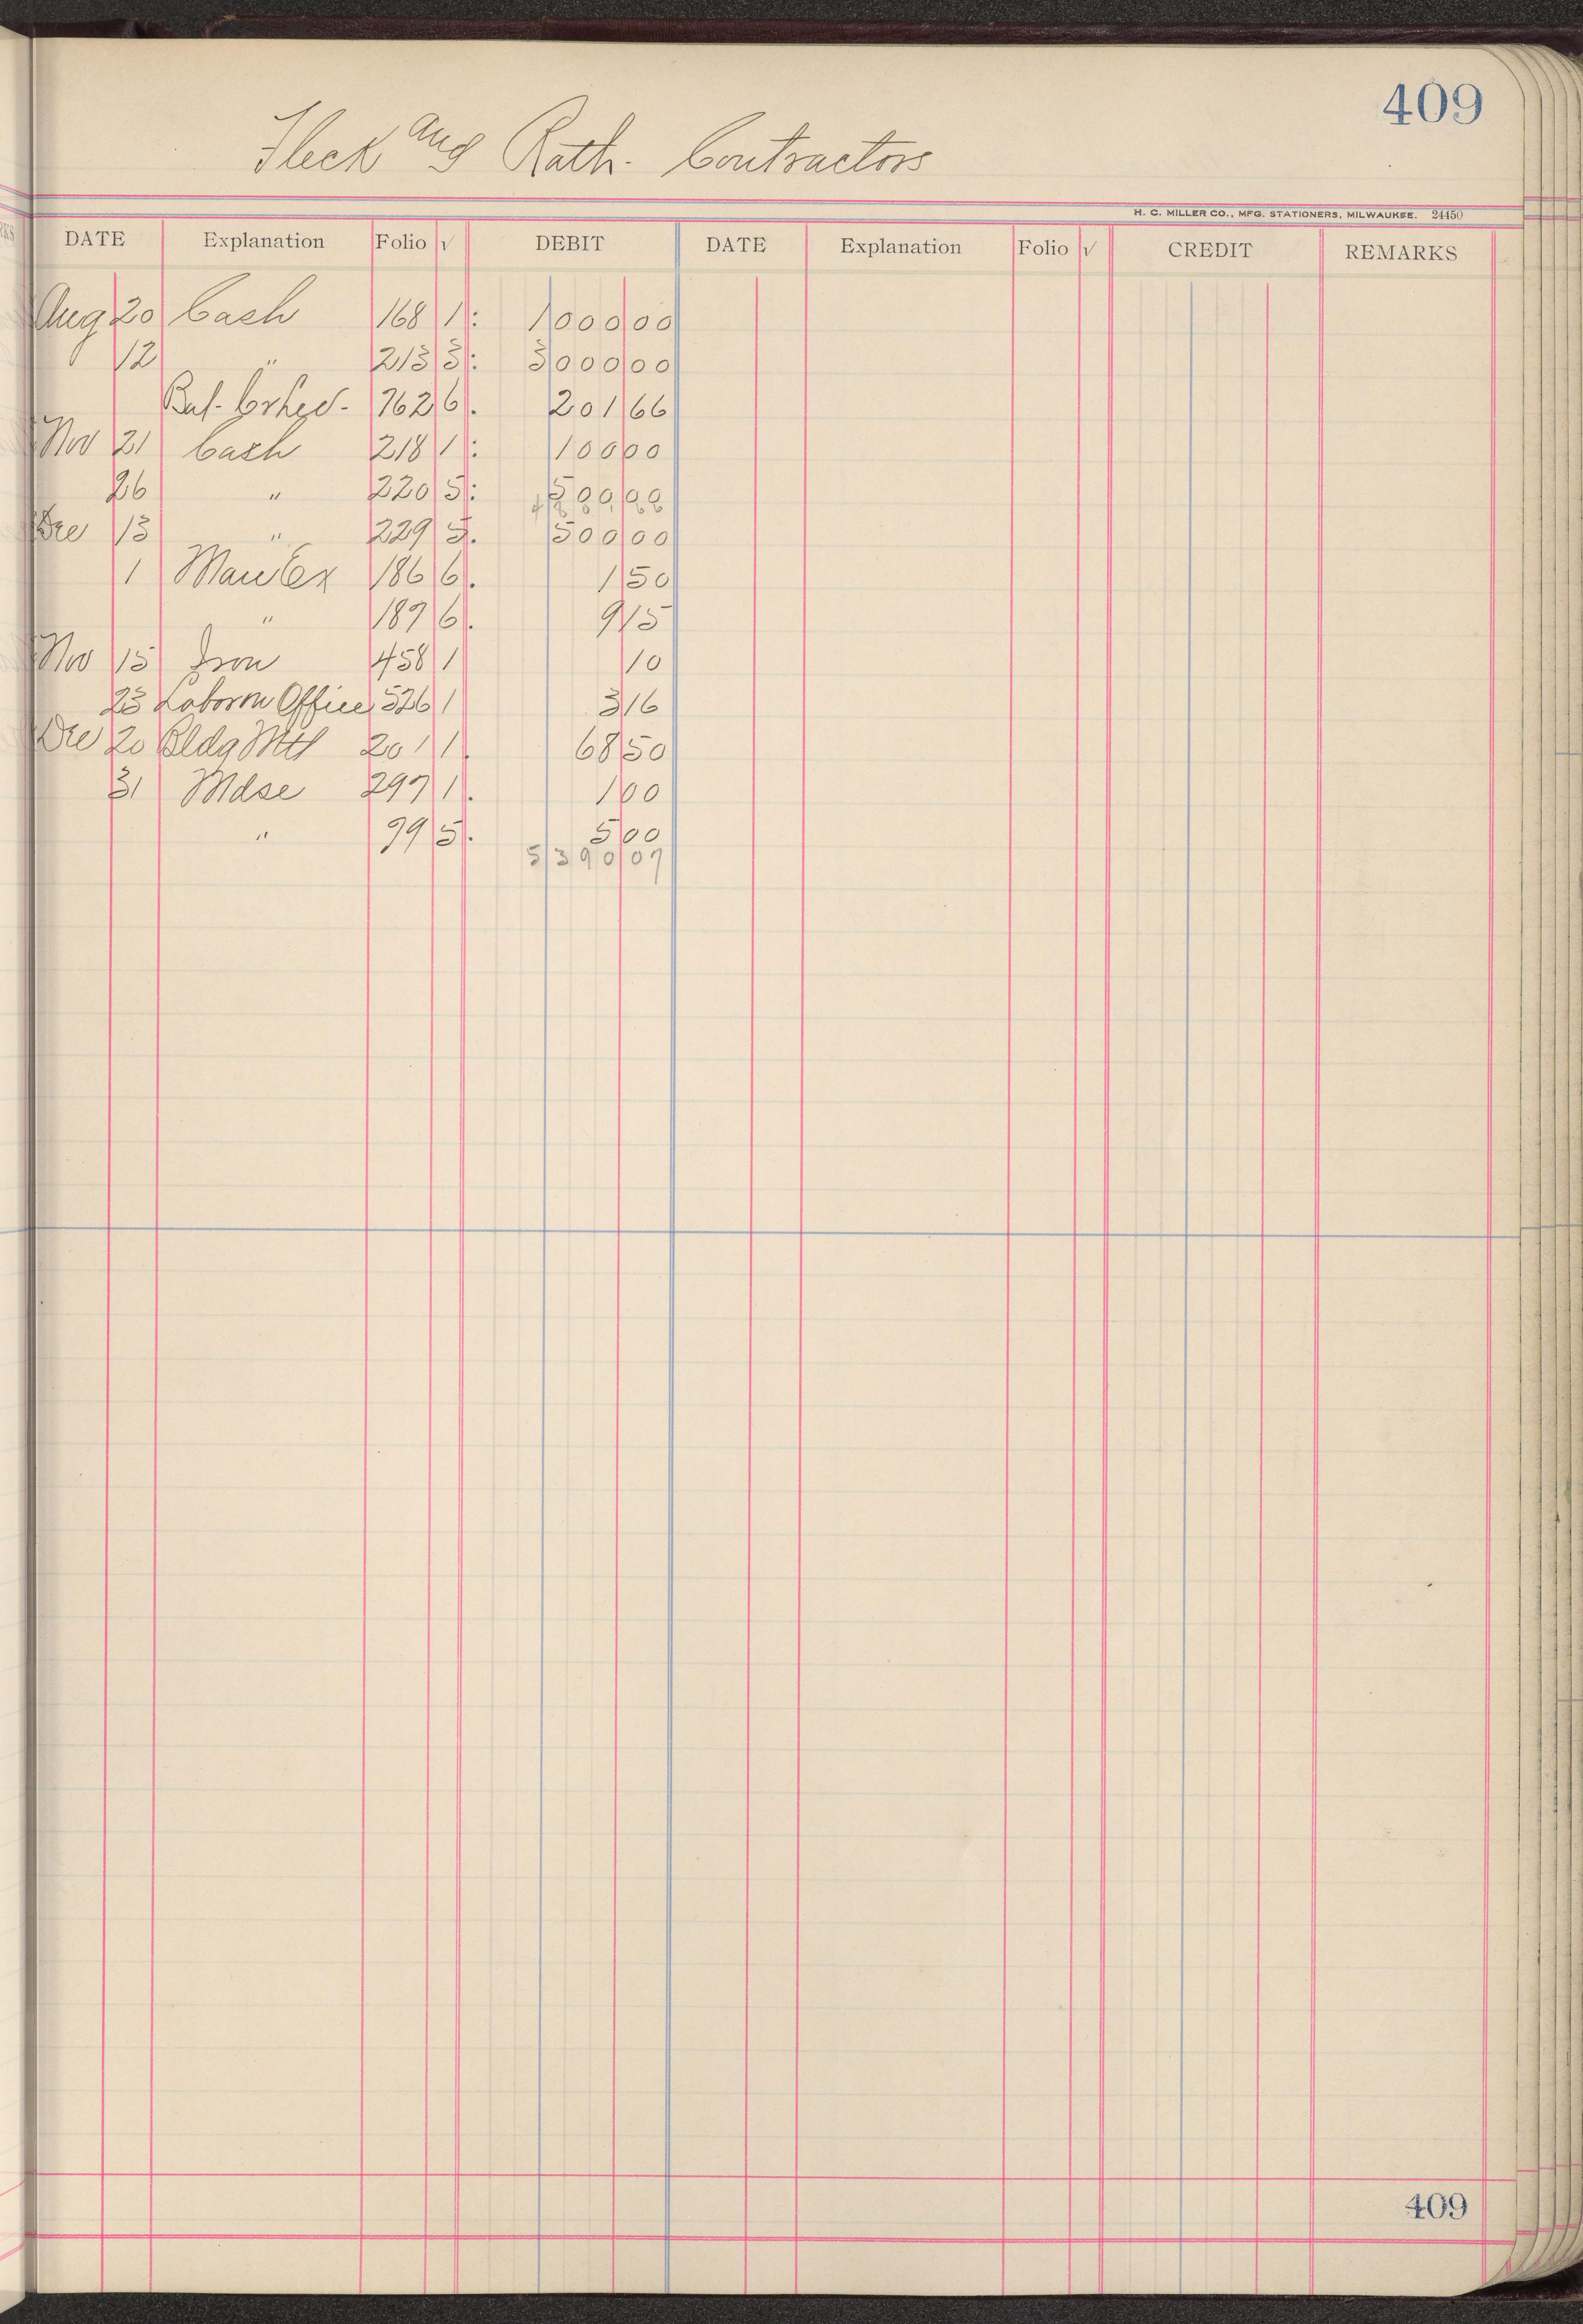 409
Fleck and Rath. Contractors
H. C. MILLER CO., MFG. STATIONERS, MILWAUKEE. 24450
DATE Explanation Folio √ DEBIT DATE Explanation Folio √ CREDIT REMARKS
Aug 20 Cash 168 1: 1000 00
12 " 213 3: 3000 00
Bal. 762 6. 201 66
Nov 21 Cash 218 1: 100 00
26 " 220 5: 500 00
Dec 13 " 229 5. 500 00
1 Man Ex 186 6. 1 50
" 187 6. 9 15
Nov 15 Iron 458 1 10
23 Labor on Office 526 1 3 16
Dec 20 Bldg Mtl 201 1. 68 50
31 Mdse 297 1. 1 00
" 99 5. 5 00
5390 07
409